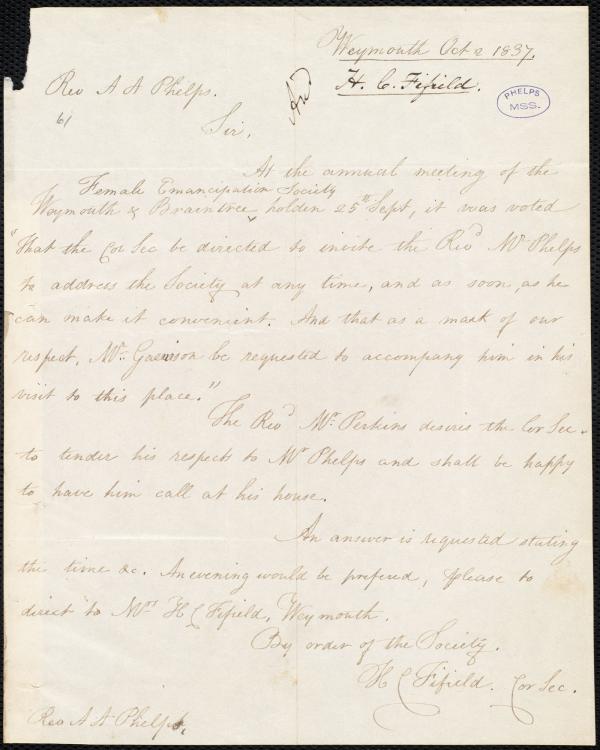 Weymouth Oct 2 1837.
H. C. Fifield.
Ansd
PHELPS
MSS.
Rev A A Phelps.
61
Sir,
At the annual meeting of the
Female Emancipation Society
Weymouth & Braintree, holden 25th Sept, it was voted
"That the Cor Sec be directed to invite the Revd Mr Phelps
to address the Society at any time, and as soon, as he
can make it convenient. And that as a mark of our
respect, Mr. Garrison be requested to accompany him in his
visit to this place."
The Revd Mr. Perkins desires the Cor Sec.
to tender his respects to Mr Phelps and shall be happy
to have him call at his house.
An answer is requested stating
the time &c. An evening would be prefered, please to
direct to Mrs H C Fifield, Weymouth.
By order of the Society.
H C Fifield. Cor Sec.
Rev A A Phelps.